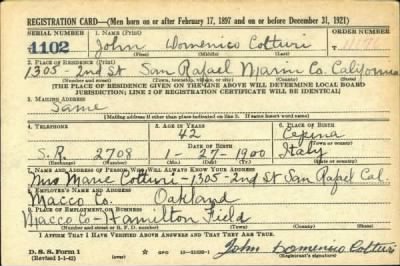 REGISTRATION CARD—(Men born on or after February 17, 1897 and on or before December 31, 1921)
SERIAL NUMBER 1. NAME (Print) ORDER NUMBER
1102 John Domenico Cotturi
(First) (Middle) (Last)
2. PLACE OF RESIDENCE (Print)
1305 2nd St San Rafael Marin Co. California
(Number and street) (Town, township, village, or city) (County) (State)
[THE PLACE OF RESIDENCE GIVEN ON THE LINE ABOVE WILL DETERMINE LOCAL BOARD
JURISDICTION; LINE 2 OF REGISTRATION CERTIFICATE WILL BE IDENTICAL]
3. MAILING ADDRESS
Same
[Mailing address if other than place indicated on line 2. If same insert word same]
4. TELEPHONE 5. AGE IN YEARS 6. PLACE OF BIRTH
42 Cepina
DATE OF BIRTH (Town or county)
S.R. 2708 1-27-1900 Italy
(Exchange) (Number) (Mo.) (Day) (Yr.) (State or country)
7. NAME AND ADDRESS OF PERSON WHO WILL ALWAYS KNOW YOUR ADDRESS
Mrs Marie Cotturi-1305-2nd St San Rafael Cal.
8. EMPLOYER'S NAME AND ADDRESS
Macco Co. Oakland
9. PLACE OF EMPLOYMENT OR BUSINESS
Macco Co-Hamilton Field
(Number and street or R. F. D. number) (Town) (County) (State)
I AFFIRM THAT I HAVE VERIFIED ABOVE ANSWERS AND THAT THEY ARE TRUE.
D. S. S. Form 1 GPO John Domenico Cotturi
(Revised 1-1-42) (Registrant's signature)